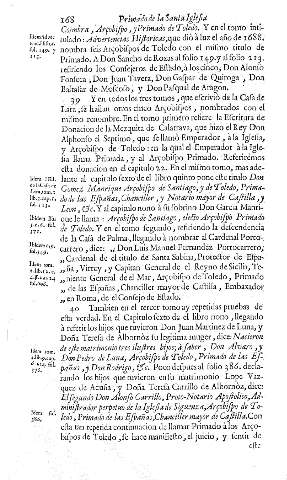 168 Primacía de la Santa Iglesia
Coimbra, Arçobispo, y Primado de Toledo. Y en el tomo inti-
tulado: Advertencias Historicas, que diò à luz el año de 1688.
nombra seis Arçobispos de Toledo con el mismo titulo de
Primado. A Don Sancho de Roxas al folio 149. y al folio 213.
refiriendo los Consejeros de Estado, à los cinco, Don Alonso
Fonseca, Don Juan Tavera, Don Gaspar de Quiroga, Don
Baltasar de Moscoso, y Don Pasqual de Aragon.
39 Y en todos los tres tomos, que escrivió de la Casa de
Lara, se hallan otros cinco Arçobispos, nombrados con el
mismo renombre. En el tomo primero refiere la Escritura de
Donacion de la Mezquita de Calatrava, que hizo el Rey Don
Alphonso el Septimo, que se llamò Emperador, à la Iglesia,
y Arçobispo de Toledo: en la qual el Emperador à la Igle-
sia llama Primada, y al Arçobispo Primado. Referirèmos
esta donacion en el capitulo 22. En el mismo tomo, mas ade-
lante al capitulo sexto de el libro quinto pone este titulo Don
Gomez Manrique Arçobispo de Santiago, y de Toledo, Prima-
do de las Españas, Chanciller, y Notario mayor de Castilla, y
Leon, &c. Y al capitulo nono à su sobrino Don Garcia Manri-
que le llama: Arçobispo de Santiago, electo Arçobispo Primado
de Toledo. Y en el tomo segundo, refiriendo la descendencia
de la Casa de Palma, llegando à nombrar al Cardenal Porto-
carrero, dize: Don Luis Manuel Fernandez Portocarrero,
Cardenal de el titulo de Santa Sabina, Protector de Espa-
ña, Virrey, y Capitan General de el Reyno de Sicilia, Te-
niente General de el Mar, Arçobispo de Toledo, Primado
de las Españas, Chanciller mayor de Castilla, Embaxador
en Roma, de el Consejo de Estado.
40 Tambien en el tercer tomo ay repetidas pruebas de
esta verdad. En el Capitulo sexto de el libro nono, llegando
à referir los hijos que tuvieron Don Juan Martinez de Luna, y
Doña Teresa de Albornòz su legitima muger, dize: Nacieron
de este matrimonio tres ilustres hijos; à saber, Don Alvaro, y
Don Pedro de Luna, Arçobispo de Toledo, Primado de las Es-
pañas, y Don Rodrigo, &c. Poco despues al folio 386. decla-
rando los hijos que tuvieron en su matrimonio Lope Vaz-
quez de Acuña, y Doña Teresa Carrillo de Albornòz, dize:
El segundo Don Alonso Carrillo, Proto-Notario Apostolico, Ad-
ministrador perpetuo de la Iglesia de Siguenza, Arçobispo de To-
ledo, Primado de las Españas, Chanciller mayor de Castilla. Con
esta tan repetida continuacion de llamar Primado à los Arço-
bispos de Toledo, se haze manifiesto, el juicio, y sentir de
este